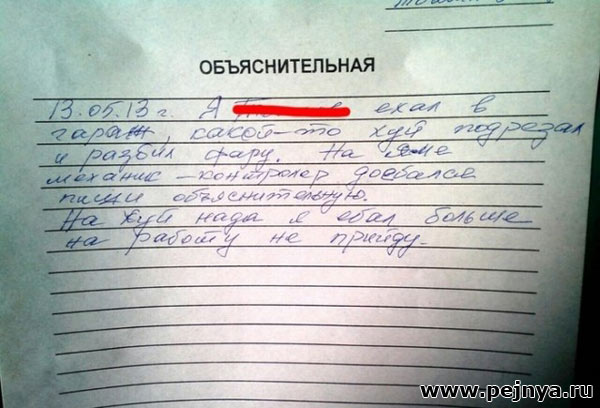 ОБЪЯСНИТЕЛЬНАЯ
13.05.13 г. Я ехал в
гараж, какой-то хуй подрезал
и разбил фару. На яме
механик-контролер доебался
пиши объяснительную.
На хуй нада я ебал больше
на работу не прийду.
www.pejnya.ru